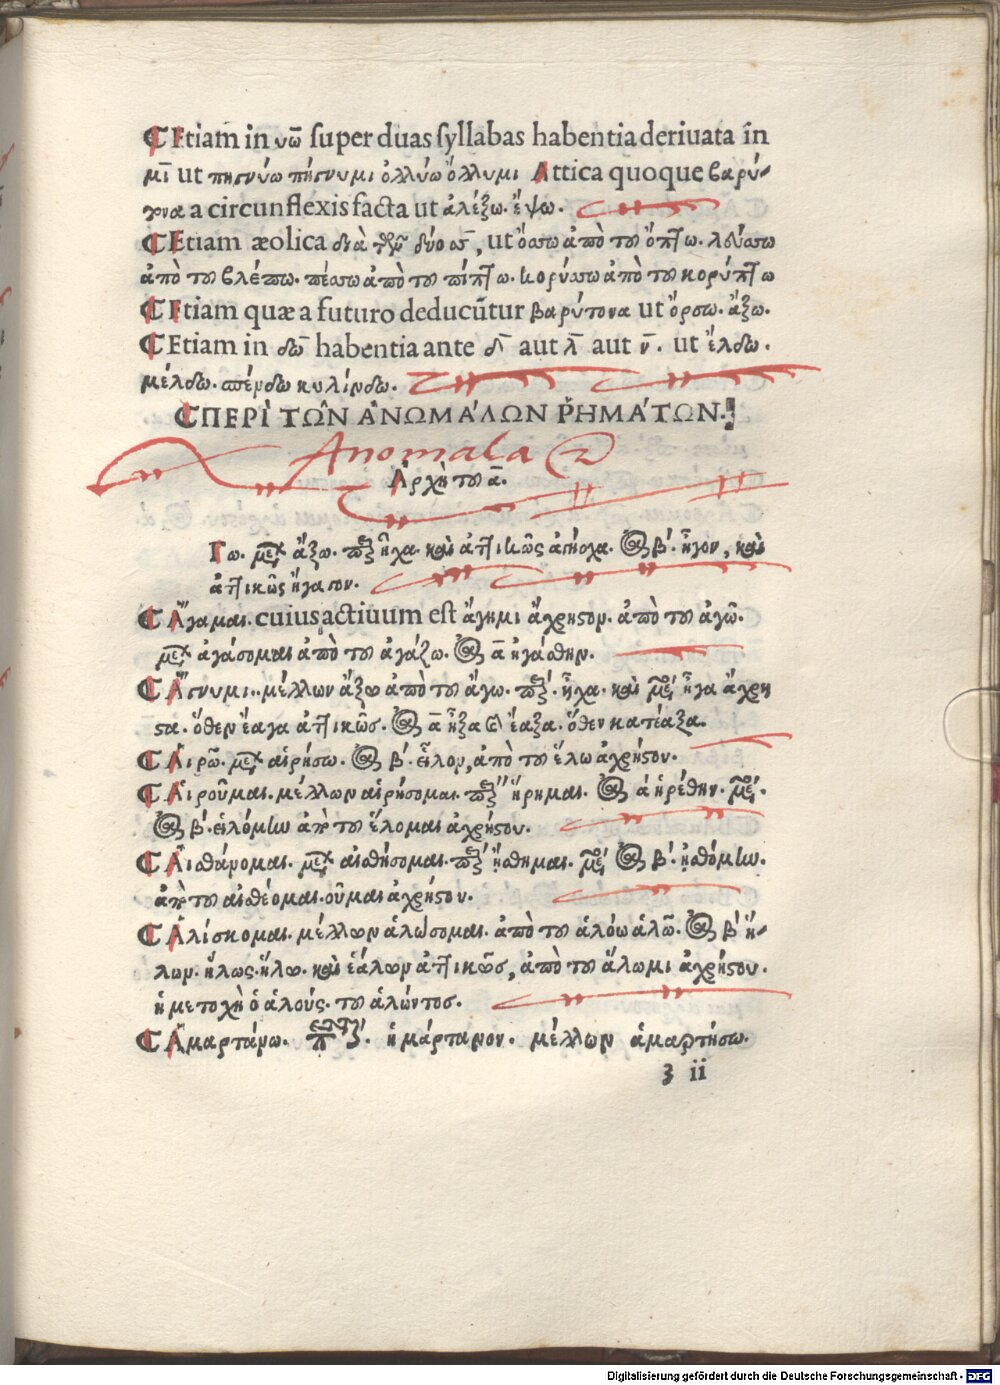 ¶ Etiam in νω̄ super duas syllabas habentia deriuata in
μῑ ut πηγνύω πήγνυμι ὀλλύω ὄλλυμι Attica quoque βαρύ-
τονα a circunflexis facta ut ἀλέξω. ἕψω.
¶ Etiam æolica διὰ τῶν δύο σσ̄, ut ὄσσω ἀπὸ τοῦ ὄπτω. λεύσσω
ἀπὸ τοῦ βλέπω. πέσσω ἀπὸ τοῦ πίπτω. κορύσσω ἀπὸ τοῦ κορύπτω
¶ Etiam quæ a futuro deducūtur βαρύτονα ut ὄρσω. ἄξω.
¶ Etiam in δω̄ habentia ante δ̄ aut λ̄ aut ν̄. ut ἔλδω.
μέλδω. σπένδω κυλίνδω.
¶ ΠΕΡῚ ΤΩ͂Ν ἈΝΩΜΆΛΩΝ ῬΗΜΆΤΩΝ.
Anomala
Ἀρχὴ τοῦ ᾱ.
Γω. μελ ἄξω. πξ ἦχα. καὶ ἀττικῶς ἀγήοχα. ὁ ἀόρ β´. ἦγον, καὶ
ἀττικῶς ἤγαγον.
¶ Ἄγαμαι. cuius actiuum est ἄγημι ἄχρηστον. ἀπὸ τοῦ ἀγῶ.
μελ ἀγάσομαι ἀπὸ τοῦ ἀγάζω. ἀόρ ᾱ ἠγάσθην.
¶ Ἄγνυμι. μέλλων ἄξω ἀπὸ τοῦ ἄγω. πξ. ἦχα. καὶ μέσ ἦγα ἄχρη
στα. ὅθεν ἔαγα ἀττικῶς. ἀόρ ᾱ ἦξα καὶ ἔαξα. ὅθεν κατέαξα.
¶ Αἱρῶ. μελ αἱρήσω. ἀόρ β´. εἷλον, ἀπὸ τοῦ ἕλω ἀχρήστου.
¶ Αἱροῦμαι. μέλλων αἱρήσομαι. πξ ᾕρημαι. ἀόρ ᾱ ᾑρέθην. μέσ.
ἀόρ β´. εἱλόμην ἀπὸ τοῦ ἕλομαι ἀχρήστου.
¶ Αἰσθάνομαι. μελ αἰσθήσομαι. πξ ᾔσθημαι. μέσ ἀόρ β´. ᾐσθόμην.
ἀπὸ τοῦ αἰσθέομαι. οῦμαι ἀχρήστου.
¶ Ἁλίσκομαι. μέλλων ἁλώσομαι. ἀπὸ τοῦ ἁλόω ἁλῶ. ἀόρ β´ ἥ-
λων. ἥλως. ἥλω. καὶ ἑάλων ἀττικῶς, ἀπὸ τοῦ ἅλωμι ἀχρήστου.
ἡ μετοχὴ ὁ ἁλούς. τοῦ ἁλόντος.
¶ Ἁμαρτάνω. ἡμάρτανον. μέλλων ἁμαρτήσω.
ʒ ii
Digitalisierung gefördert durch die Deutsche Forschungsgemeinschaft - DFG